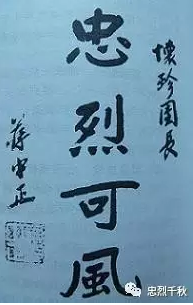 懷珍團長
忠烈可風
蔣中正
忠烈千秋